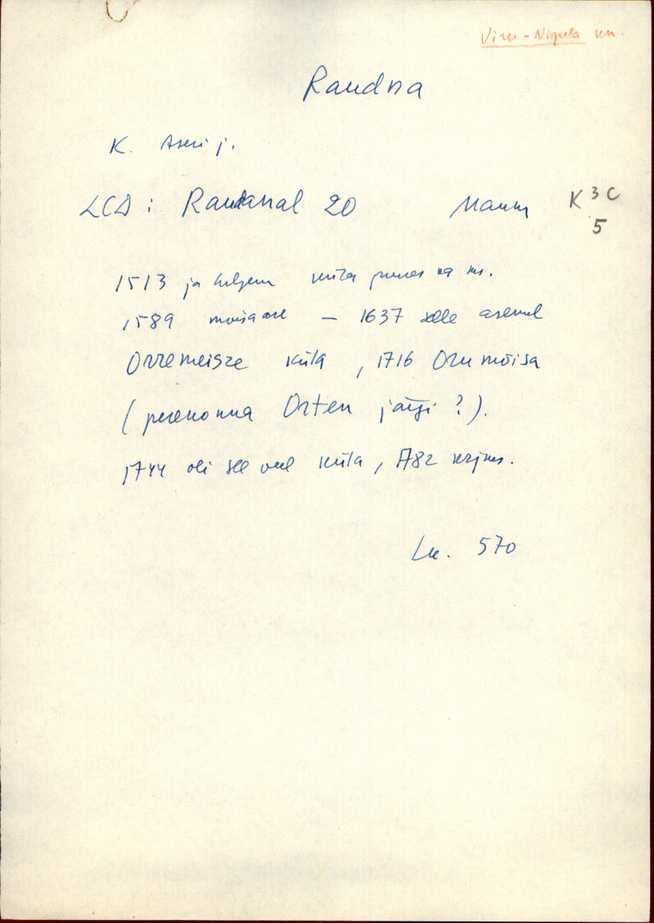 Viru-Nigula khn.
Raudna
K. Aseri j.
LCD: Raudanal 20
K 3 C
5
1513 ja hiljem küla
1589 – 1637 selle asemel
Orremeisze küla, 1716 Orumõisa
(perenonna Orten järgi?).
1744 oli see veel küla, 1782
Lk. 570